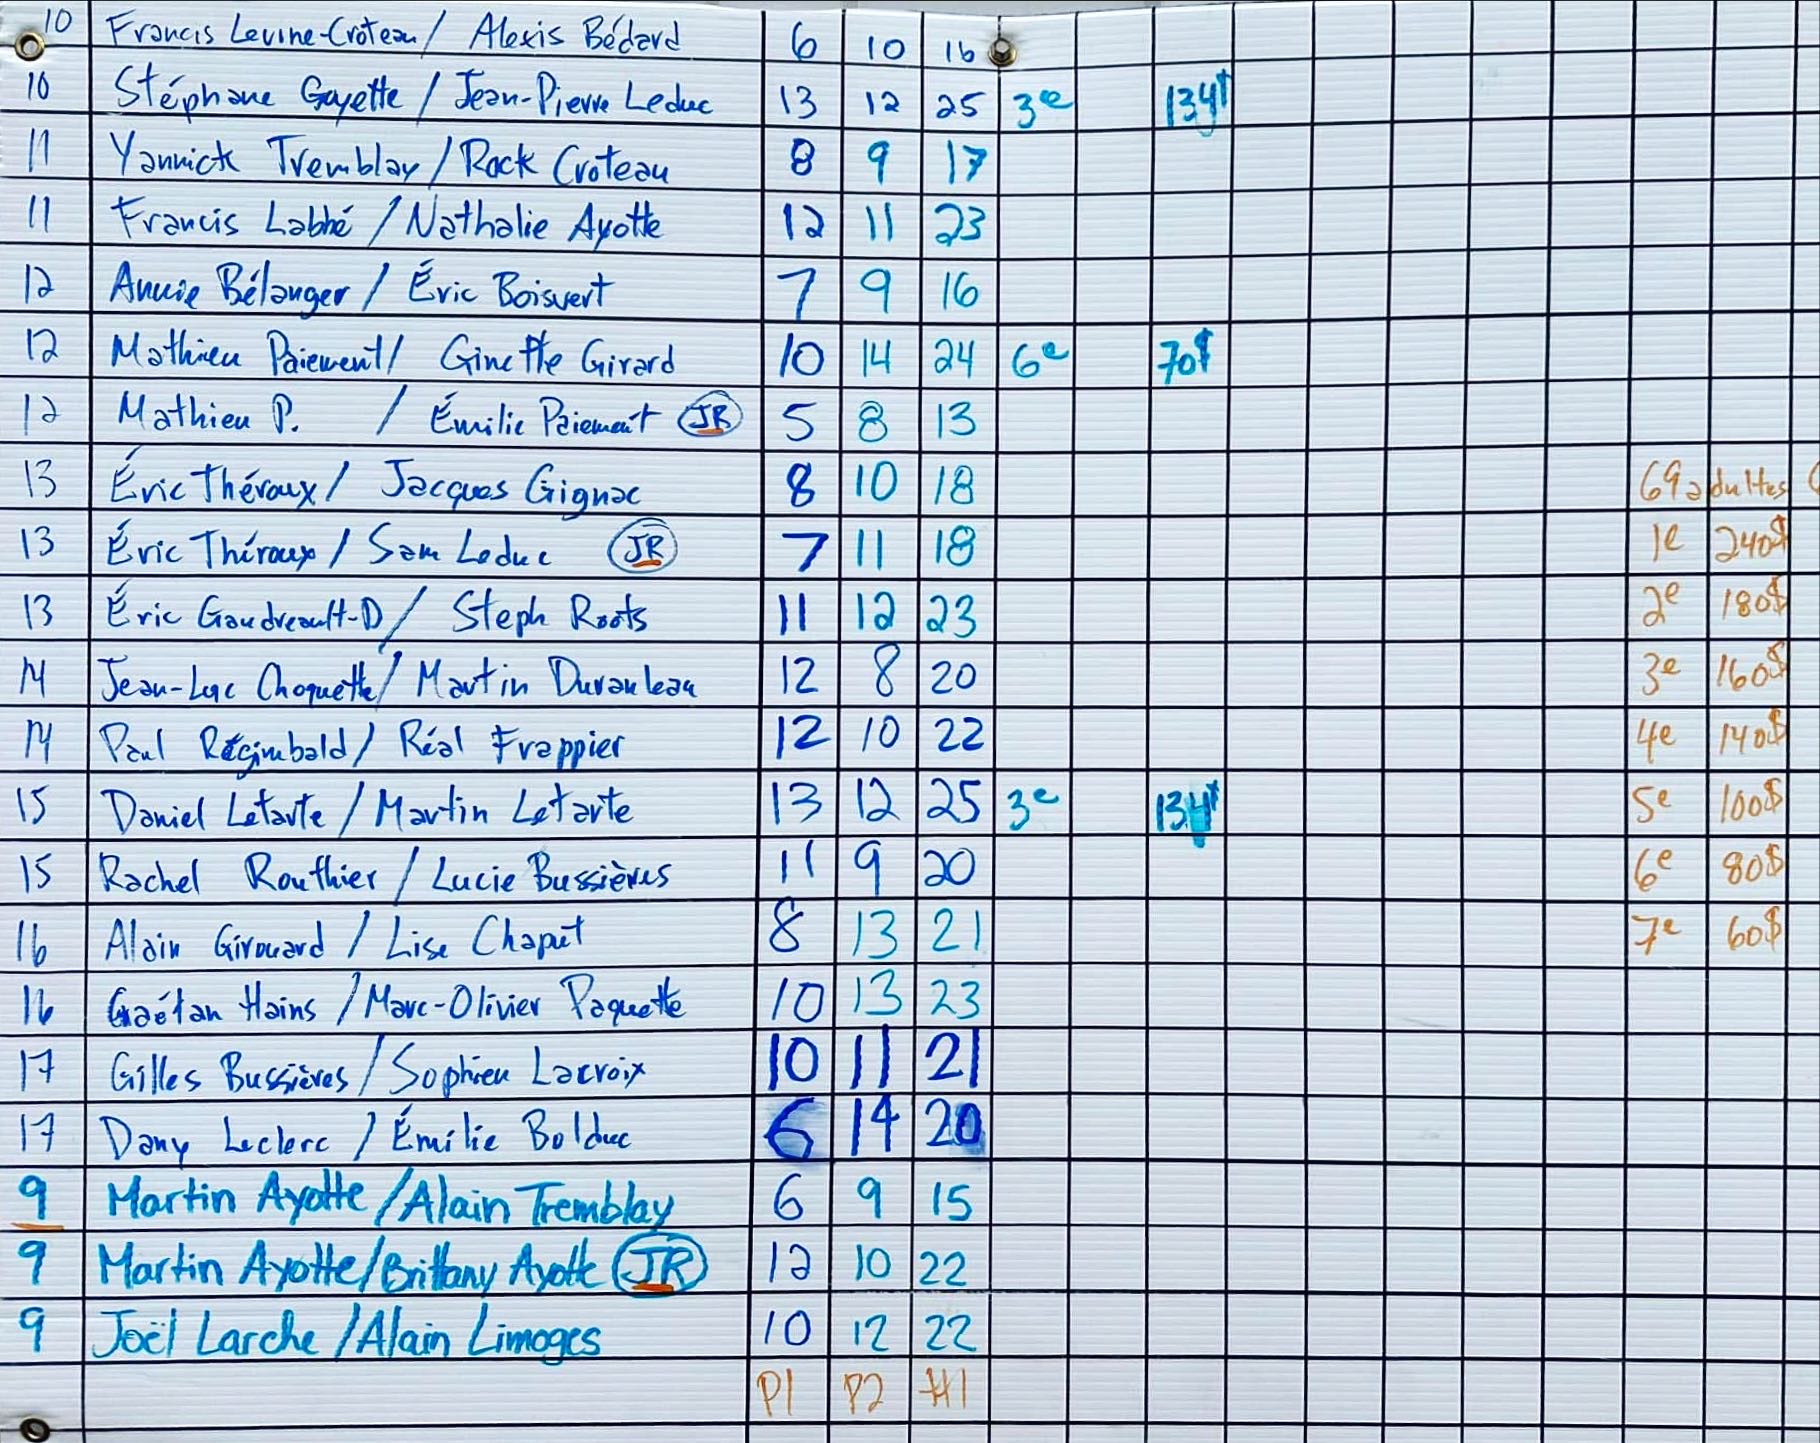 10 Francis Levine-Croteau / Alexis Bédard 6 10 16
10 Stéphane Goyette / Jean-Pierre Leduc 13 12 25 3e 134$
11 Yannick Tremblay / Rock Croteau 8 9 17
11 Francis Labbé / Nathalie Ayotte 12 11 23
12 Annie Bélanger / Éric Boisvert 7 9 16
12 Mathieu Paiement / Ginette Girard 10 14 24 6e 70$
12 Mathieu P. / Émilie Paiement JR 5 8 13
13 Éric Théroux / Jacques Gignac 8 10 18 69 adultes
13 Éric Théroux / Sam Leduc JR 7 11 18 1e 240$
13 Éric Gaudreault-D / Steph Roots 11 12 23 2e 180$
14 Jean-Luc Choquette / Martin Duranleau 12 8 20 3e 160$
14 Paul Régimbald / Réal Frappier 12 10 22 4e 140$
15 Daniel Letarte / Martin Letarte 13 12 25 3e 134$ 5e 100$
15 Rachel Routhier / Lucie Bussières 11 9 20 6e 80$
16 Alain Girouard / Lise Chaput 8 13 21 7e 60$
16 Gaétan Hains / Marc-Olivier Paquette 10 13 23
17 Gilles Bussières / Sophieu Lacroix 10 11 21
17 Dany Leclerc / Émilie Bolduc 6 14 20
9 Martin Ayotte / Alain Tremblay 6 9 15
9 Martin Ayotte / Brittany Ayotte JR 12 10 22
9 Joël Larche / Alain Limoges 10 12 22
P1 P2 #1